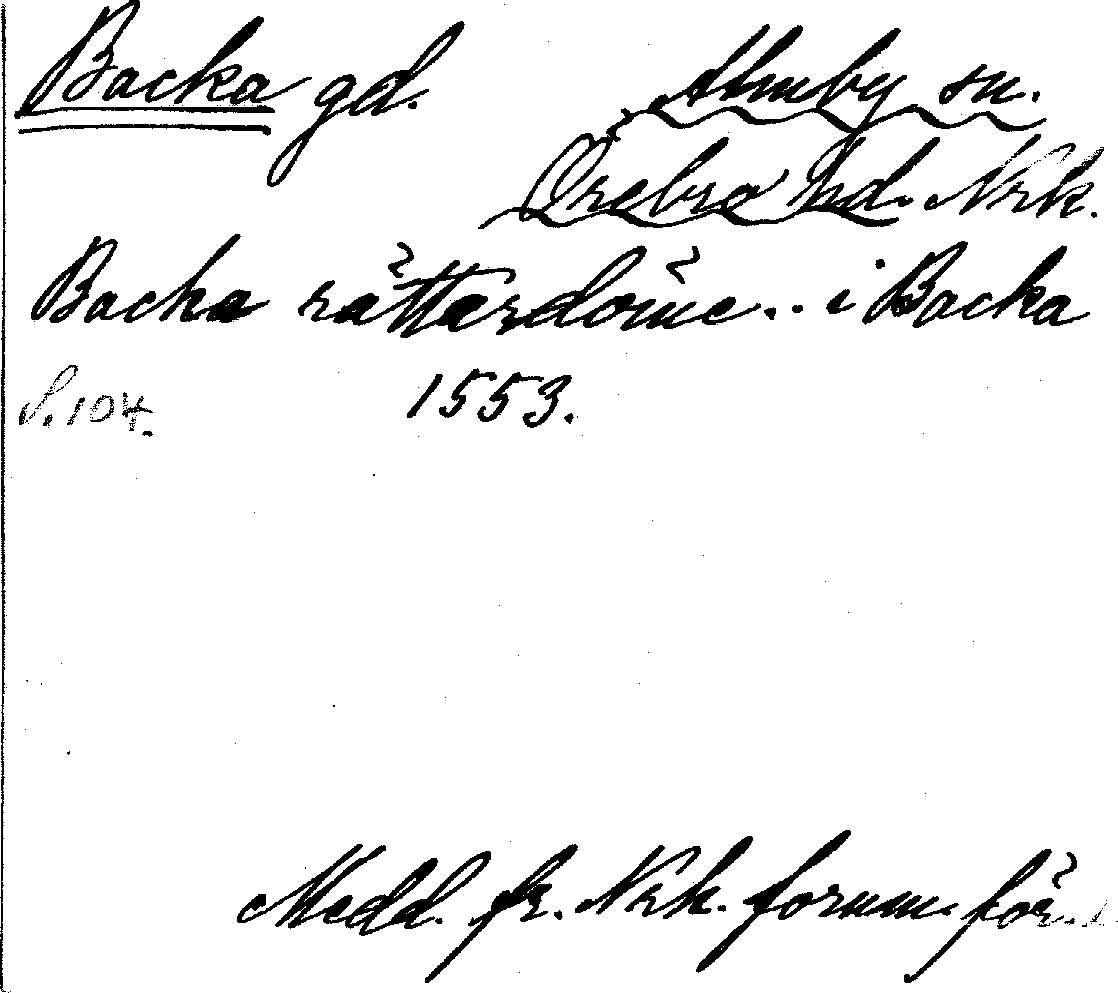 Backa gd. Almby sn.
Örebro hd. Nrk.
Backa rättardöme... i Backa
S. 104. 1553.
Medd. fr. Nrk. fornm. för.